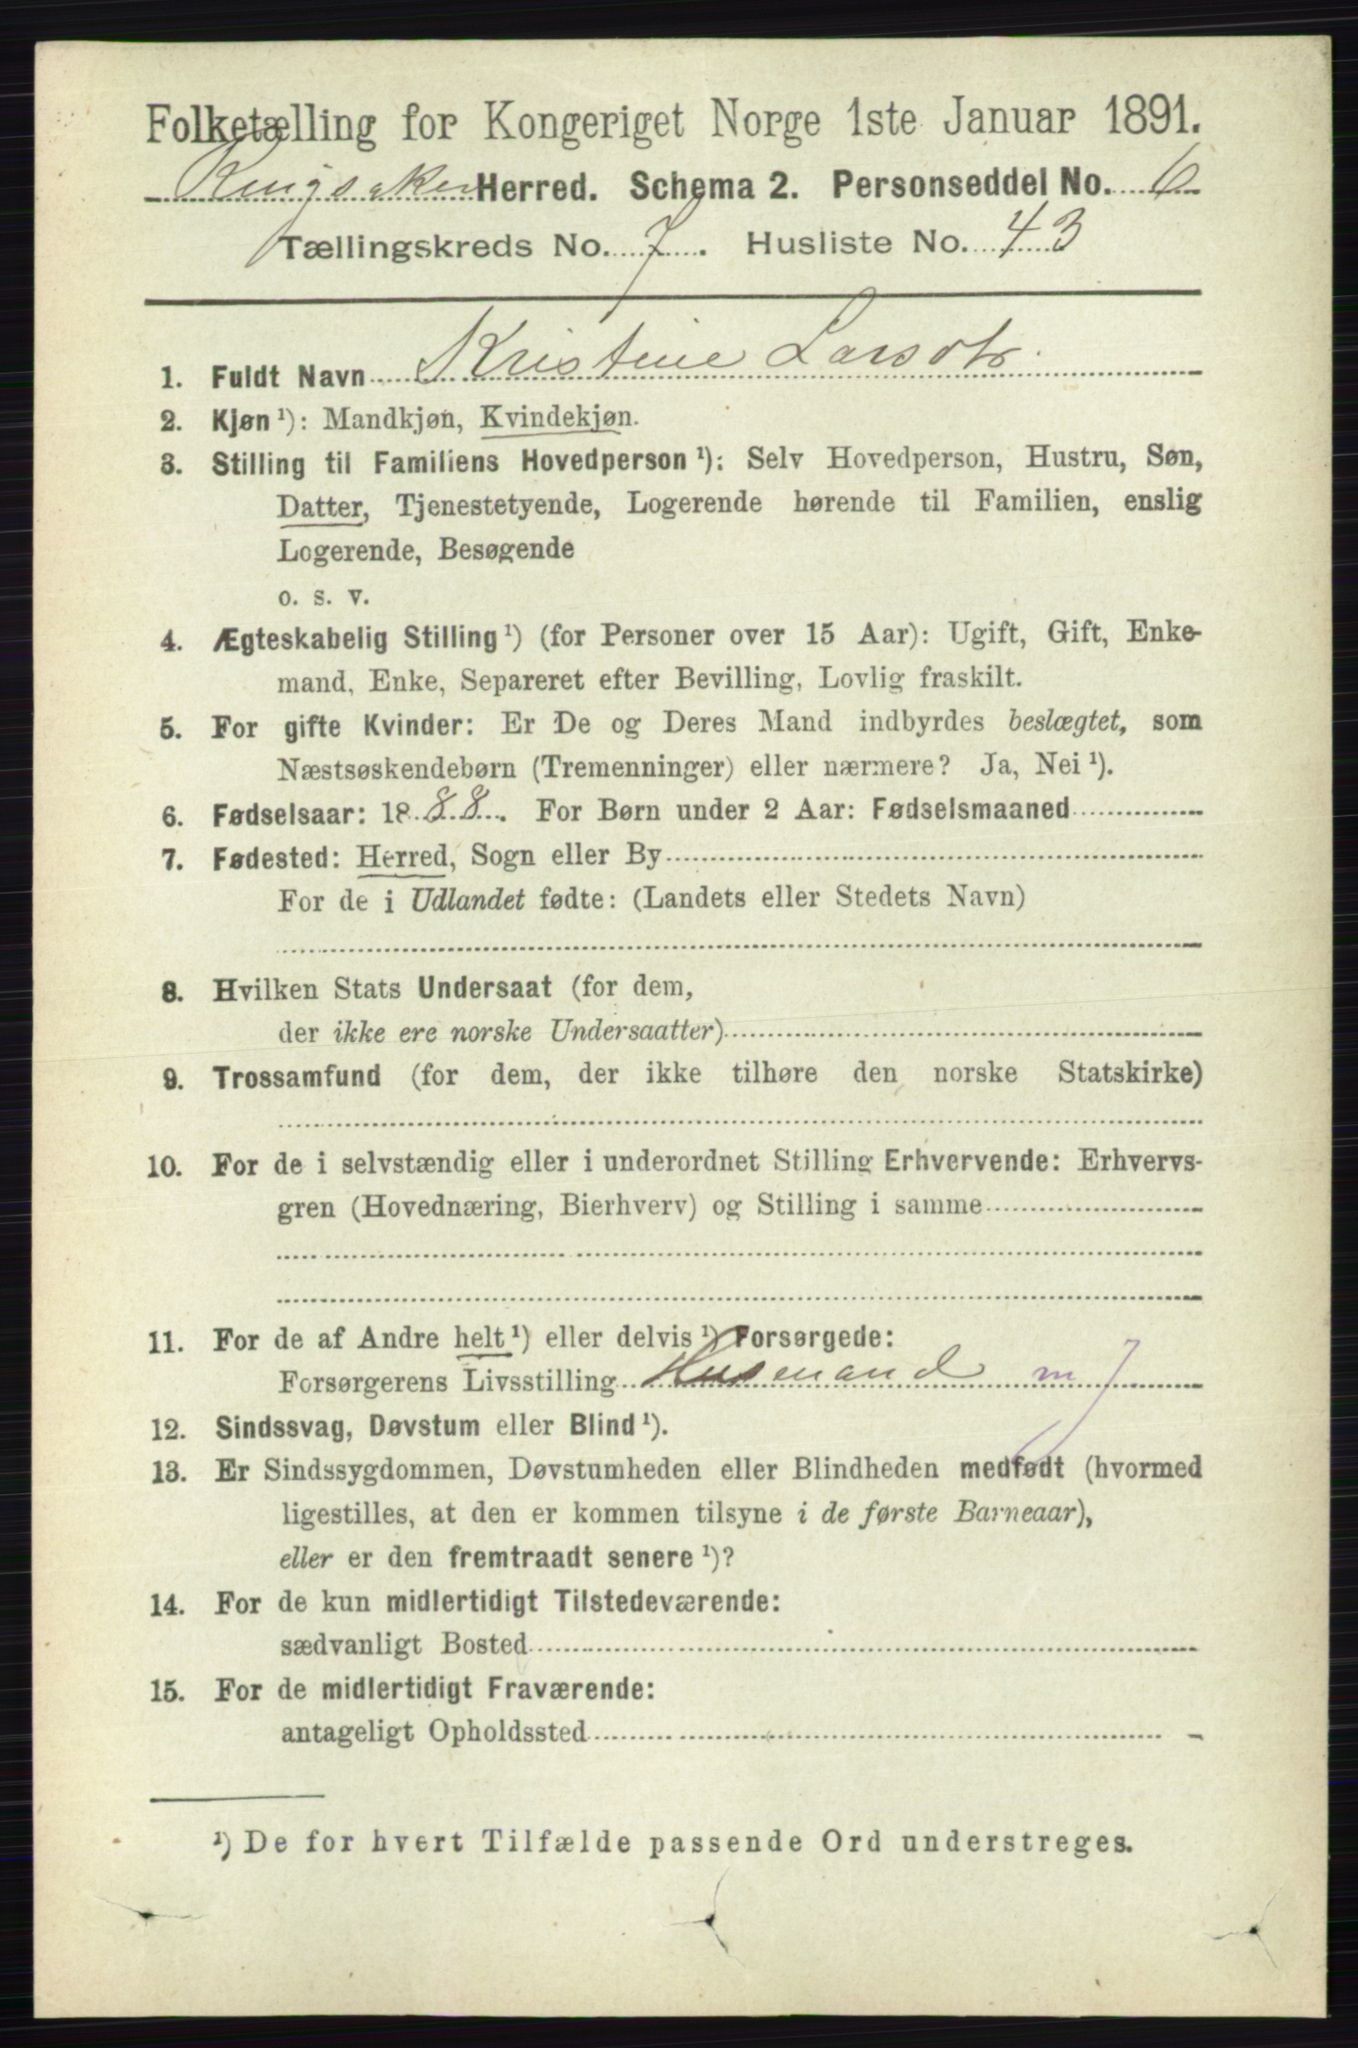 Folketælling for Kongeriget Norge 1ste Januar 1891.
Ringsaker Herred. Schema 2. Personseddel No. 6
Tællingskreds No. 7. Husliste No. 43
1. Fuldt Navn Kristine Larsdtr.
2. Kjøn ¹): Mandkjøn, Kvindekjøn.
3. Stilling til Familiens Hovedperson ¹): Selv Hovedperson, Hustru, Søn,
Datter, Tjenestetyende, Logerende hørende til Familien, enslig
Logerende, Besøgende
o. s. v.
4. Ægteskabelig Stilling ¹) (for Personer over 15 Aar): Ugift, Gift, Enke-
mand, Enke, Separeret efter Bevilling, Lovlig fraskilt.
5. For gifte Kvinder: Er De og Deres Mand indbyrdes beslægtet, som
Næstsøskendebørn (Tremenninger) eller nærmere? Ja, Nei ¹).
6. Fødselsaar: 1888. For Børn under 2 Aar: Fødselsmaaned
7. Fødested: Herred, Sogn eller By
For de i Udlandet fødte: (Landets eller Stedets Navn)
8. Hvilken Stats Undersaat (for dem,
der ikke ere norske Undersaatter)
9. Trossamfund (for dem, der ikke tilhøre den norske Statskirke)
10. For de i selvstændig eller i underordnet Stilling Erhvervende: Erhvervs-
gren (Hovednæring, Bierhverv) og Stilling i samme
11. For de af Andre helt ¹) eller delvis ¹) Forsørgede:
Forsørgerens Livsstilling Husmand m J
12. Sindssvag, Døvstum eller Blind ¹).
13. Er Sindssygdommen, Døvstumheden eller Blindheden medfødt (hvormed
ligestilles, at den er kommen tilsyne i de første Barneaar),
eller er den fremtraadt senere ¹)?
14. For de kun midlertidigt Tilstedeværende:
sædvanligt Bosted
15. For de midlertidigt Fraværende:
antageligt Opholdssted
¹) De for hvert Tilfælde passende Ord understreges.